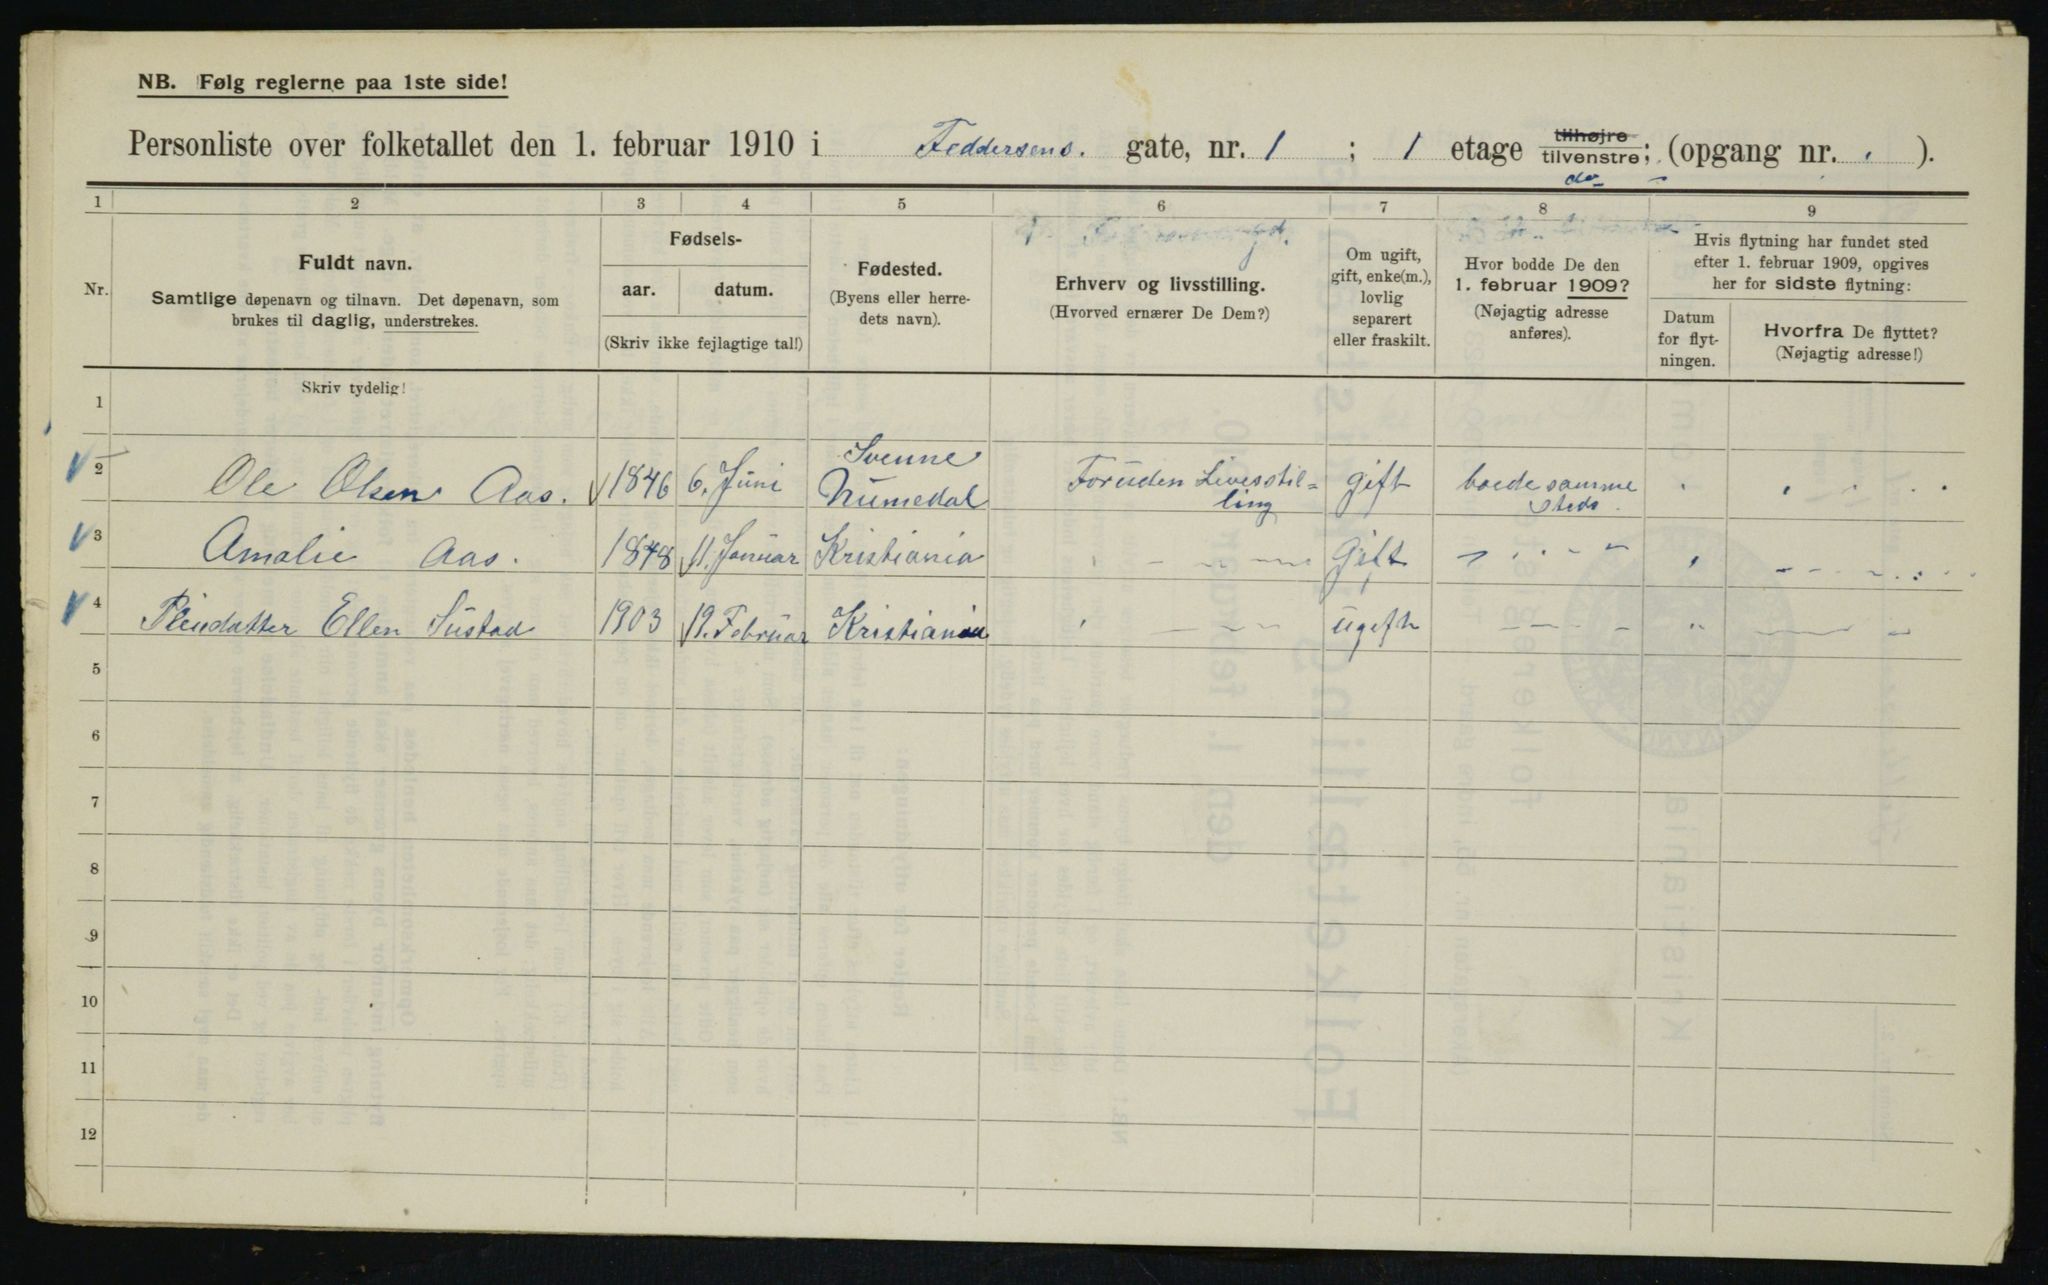 NB. Følg reglerne paa 1ste side!
Personliste over folketallet den 1. februar 1910 i Feddersens. gate, nr. 1 ; 1 etage tilhøjre tilvenstre; (opgang nr. ).
1 2 3 4 5 6 7 8 9
Nr.
Fuldt navn.
Samtlige døpenavn og tilnavn. Det døpenavn, som
brukes til daglig, understrekes.
Fødsels-
aar. datum.
(Skriv ikke fejlagtige tal!)
Fødested.
(Byens eller herre-
dets navn).
Erhverv og livsstilling.
(Hvorved ernærer De Dem?)
Om ugift,
gift, enke(m.),
lovlig
separert
eller fraskilt.
Hvor bodde De den
1. februar 1909?
(Nøjagtig adresse
anføres).
Hvis flytning har fundet sted
efter 1. februar 1909, opgives
her for sidste flytning:
Datum
for flyt-
ningen.
Hvorfra De flyttet?
(Nøjagtig adresse!)
Skriv tydelig!
1
2 Ole Olsen Aas. 1846 6. Juni Svenne Numedal Foruden Livesstil=ling gift boede samme steds.
3 Amalie Aas. 1848 11. Januar Kristiania Gift
4 Pleiedatter Ellen Sustad 1903 19. Februar Kristiania ugift
5
6
7
8
9
10
11
12